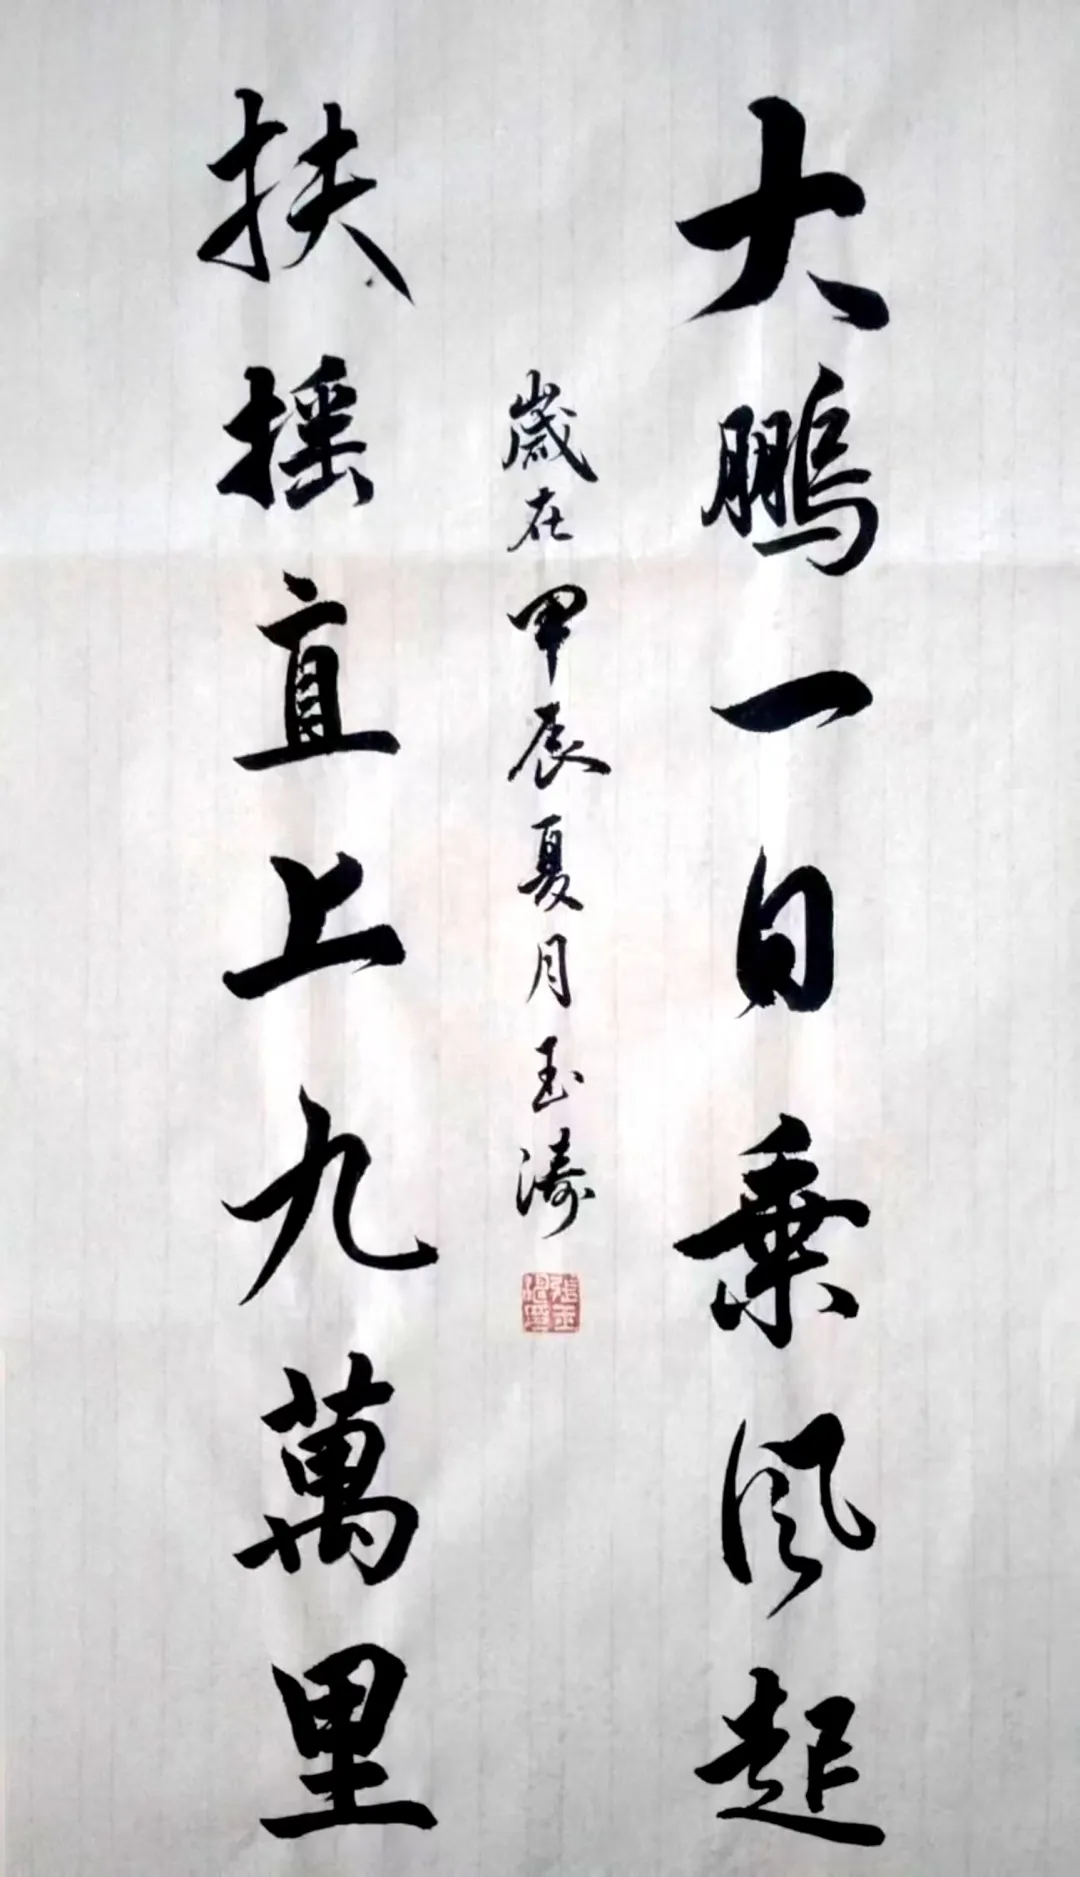 大鵬一日乗風起
扶摇直上九萬里
歲在甲辰夏月玉濤